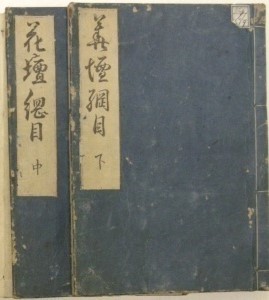 花壇綱目
下
花壇綱目
中